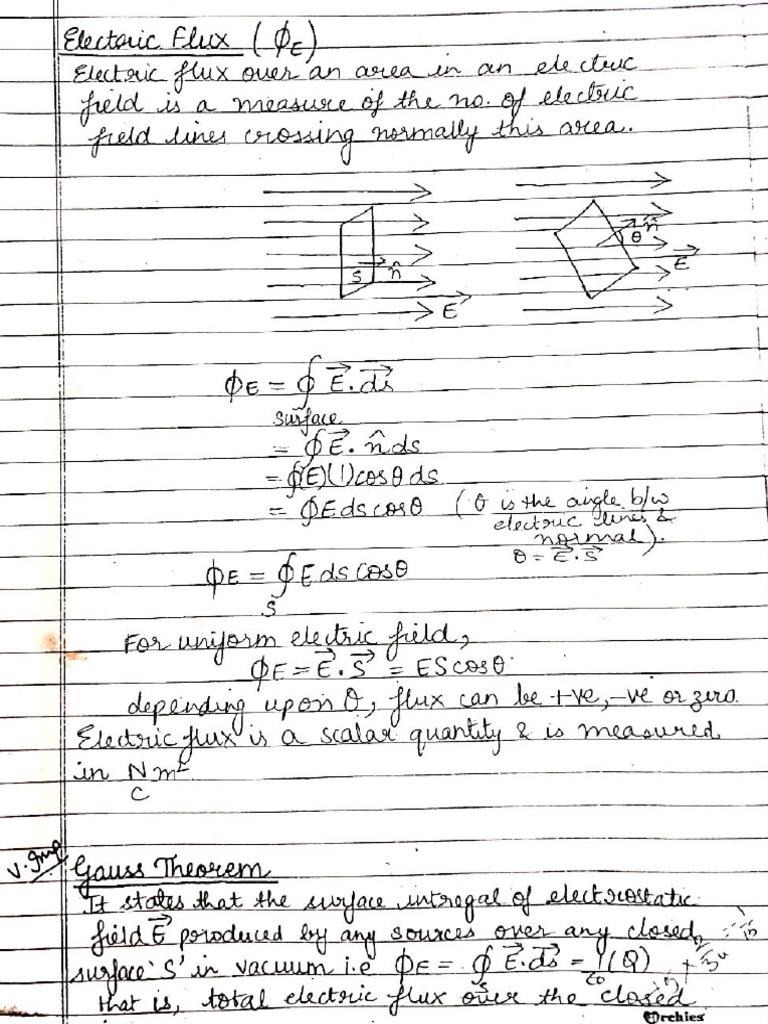 Electoric Flux (ϕE)
Electric flux over an area in an electric
field is a measure of the no. of electric
field lines crossing normally this area.
S n̂ E⃗
n̂ θ E⃗
ϕE = ∮ E⃗. ds⃗
surface
= ∮E⃗. n̂ ds
= ∮(E)(1)cosθ ds
= ∮E ds cosθ (θ is the angle b/w
electric lines &
normal).
θ = E⃗.S⃗
ϕE = ∮ E ds cosθ
S
For uniform electric field,
ϕE = E⃗. S⃗ = ES cosθ
depending upon θ, flux can be +ve, -ve or zero.
Electric flux is a scalar quantity & is measured
in N m²
C
V. Imp
Gauss Theorem
It states that the surface intregal of electrostatic
field E⃗ produced by any sources over any closed
surface 'S' in vacuum i.e ϕE = ∮ E⃗. ds⃗ = 1 (Q)
S ε0
that is, total electric flux over the closed
Archies